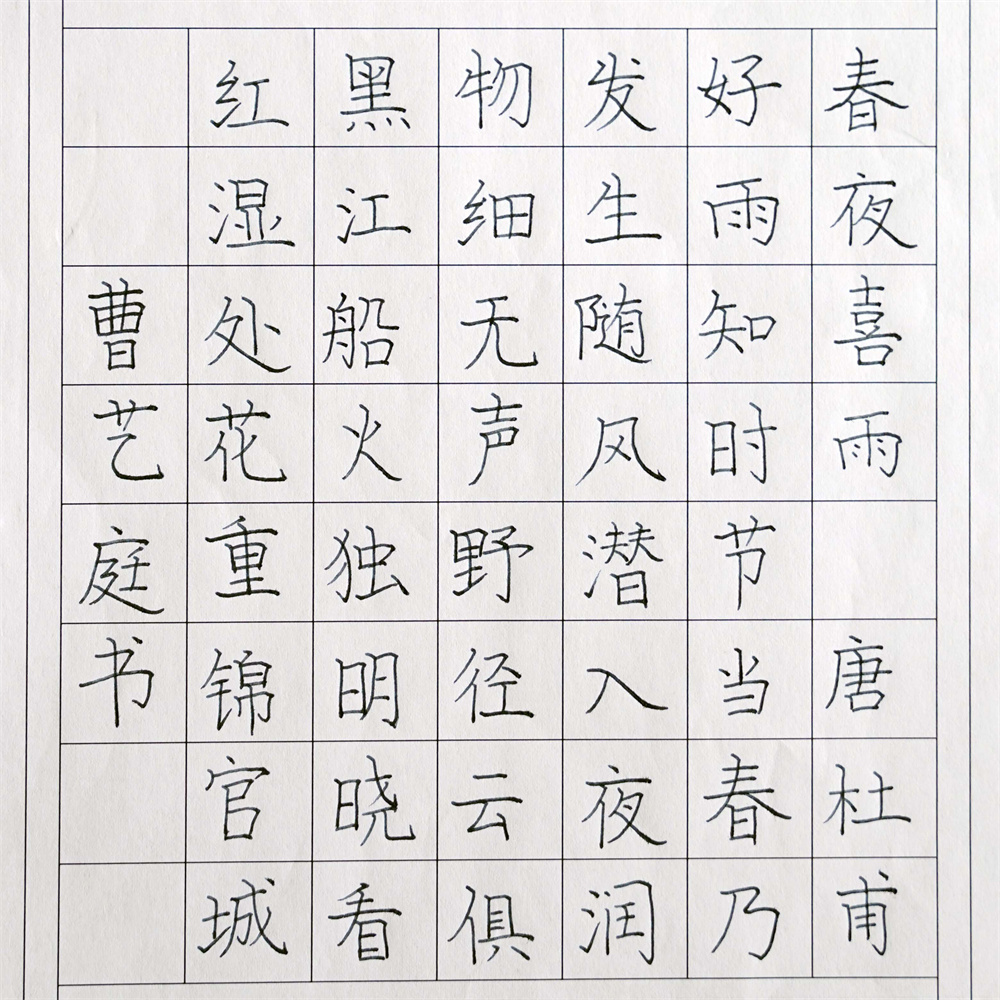 春夜喜雨 唐杜甫
好雨知时节当春乃
发生随风潜入夜润
物细无声野径云俱
黑江船火独明晓看
红湿处花重锦官城
曹艺庭书